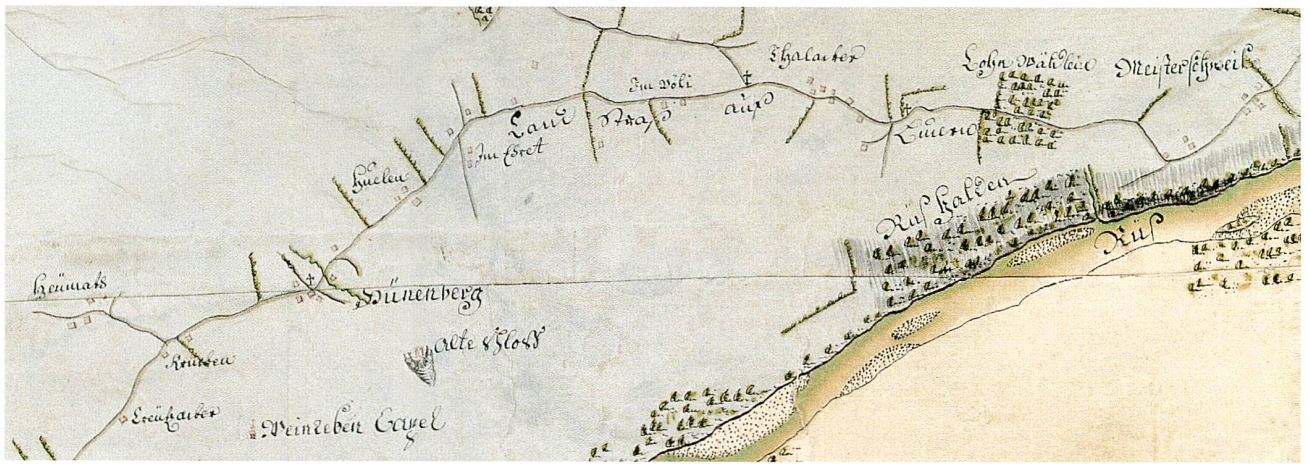 Thalacker
Lohn Wäldlein
Meisterschweil
Im Völi
Land Straß auß
Im Ehret
Huelen
Rüß halden
Rüß
Heümats
Hünenberg
Alte Schloss
Weinreben Capel